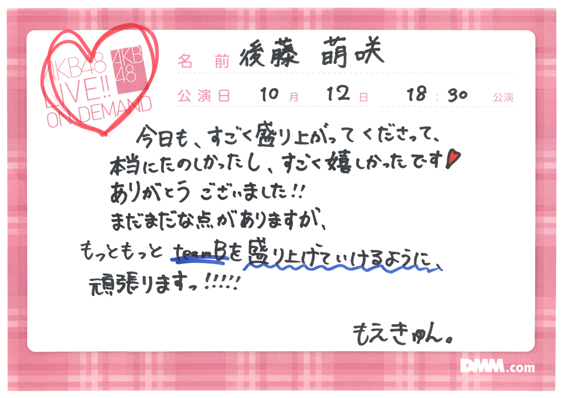 AKB48
LIVE!!
ON DEMAND
AKB
48
名 前 後藤 萌咲
公演日 10月 12日 18:30 公演
今日も、すごく盛り上がってくださって、
本当にたのしかったし、すごく嬉しかったです
ありがとう ございました!!
まだまだな点がありますが、
もっともっと teamBを盛り上げていけるように、
頑張りますっ!!!!!
もえきゅん。
DMM.com